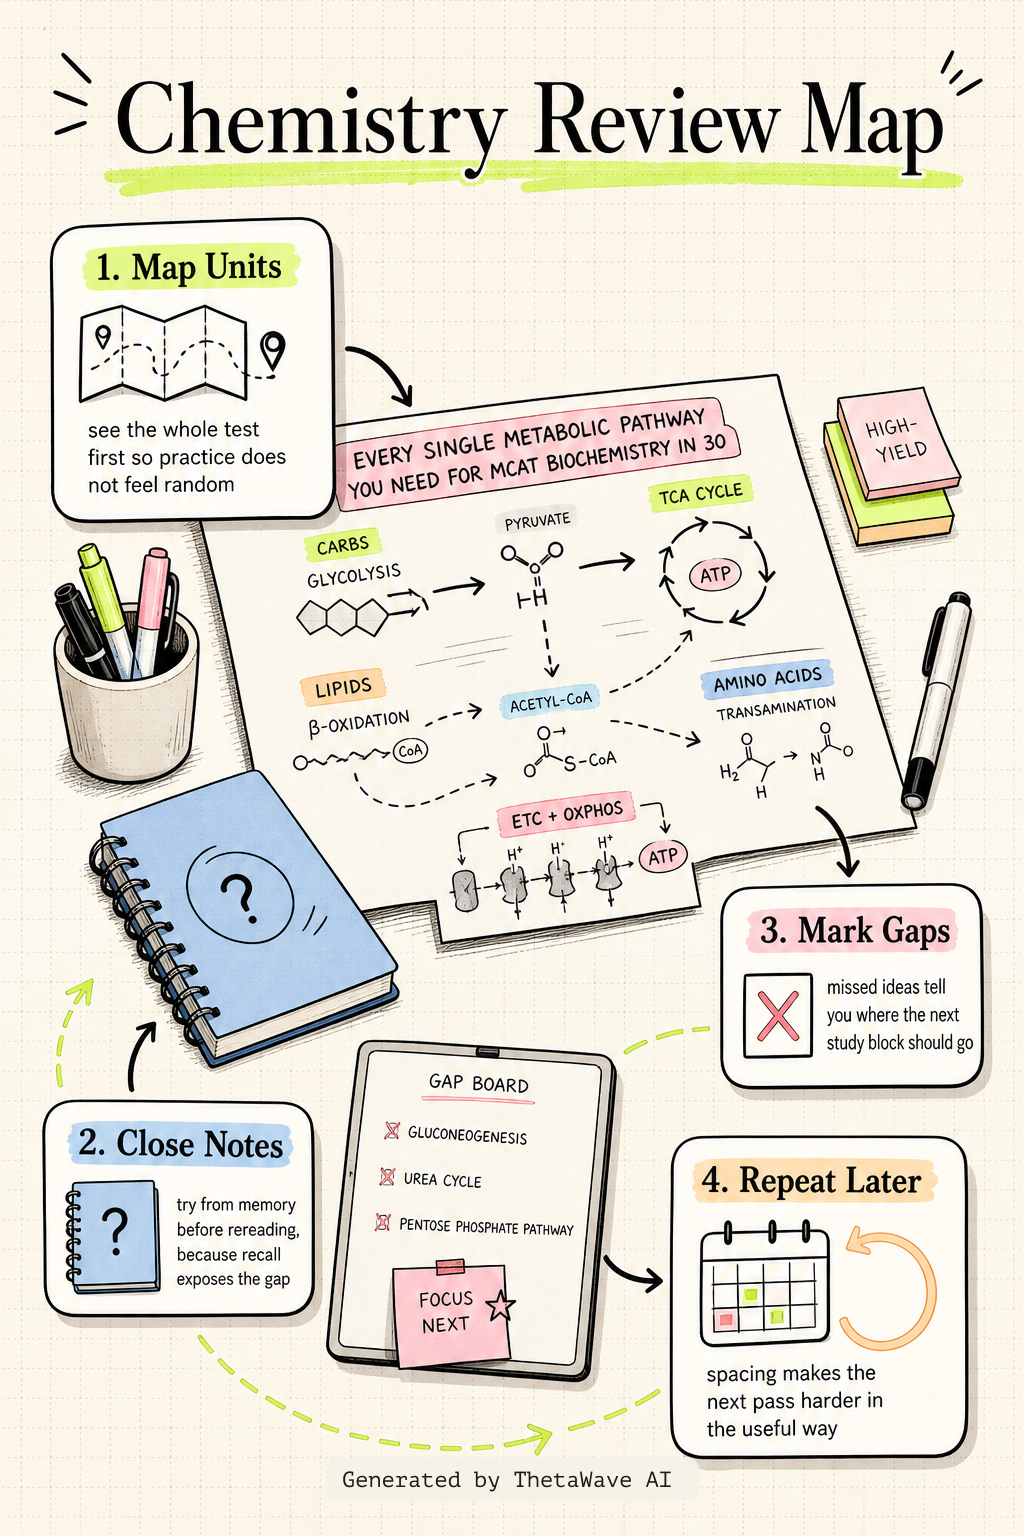 Chemistry Review Map
1. Map Units
see the whole test
first so practice does
not feel random
EVERY SINGLE METABOLIC PATHWAY
YOU NEED FOR MCAT BIOCHEMISTRY IN 30
HIGH-
YIELD
CARBS
GLYCOLYSIS
PYRUVATE
H
TCA CYCLE
ATP
LIPIDS
β-OXIDATION
CoA
ACETYL-CoA
S-CoA
AMINO ACIDS
TRANSAMINATION
H₂
H
N
H
ETC + OXPHOS
H⁺
H⁺
H⁺
ATP
?
3. Mark Gaps
missed ideas tell
you where the next
study block should go
2. Close Notes
?
try from memory
before rereading,
because recall
exposes the gap
GAP BOARD
GLUCONEOGENESIS
UREA CYCLE
PENTOSE PHOSPHATE PATHWAY
FOCUS
NEXT
4. Repeat Later
spacing makes the
next pass harder in
the useful way
Generated by ThetaWave AI